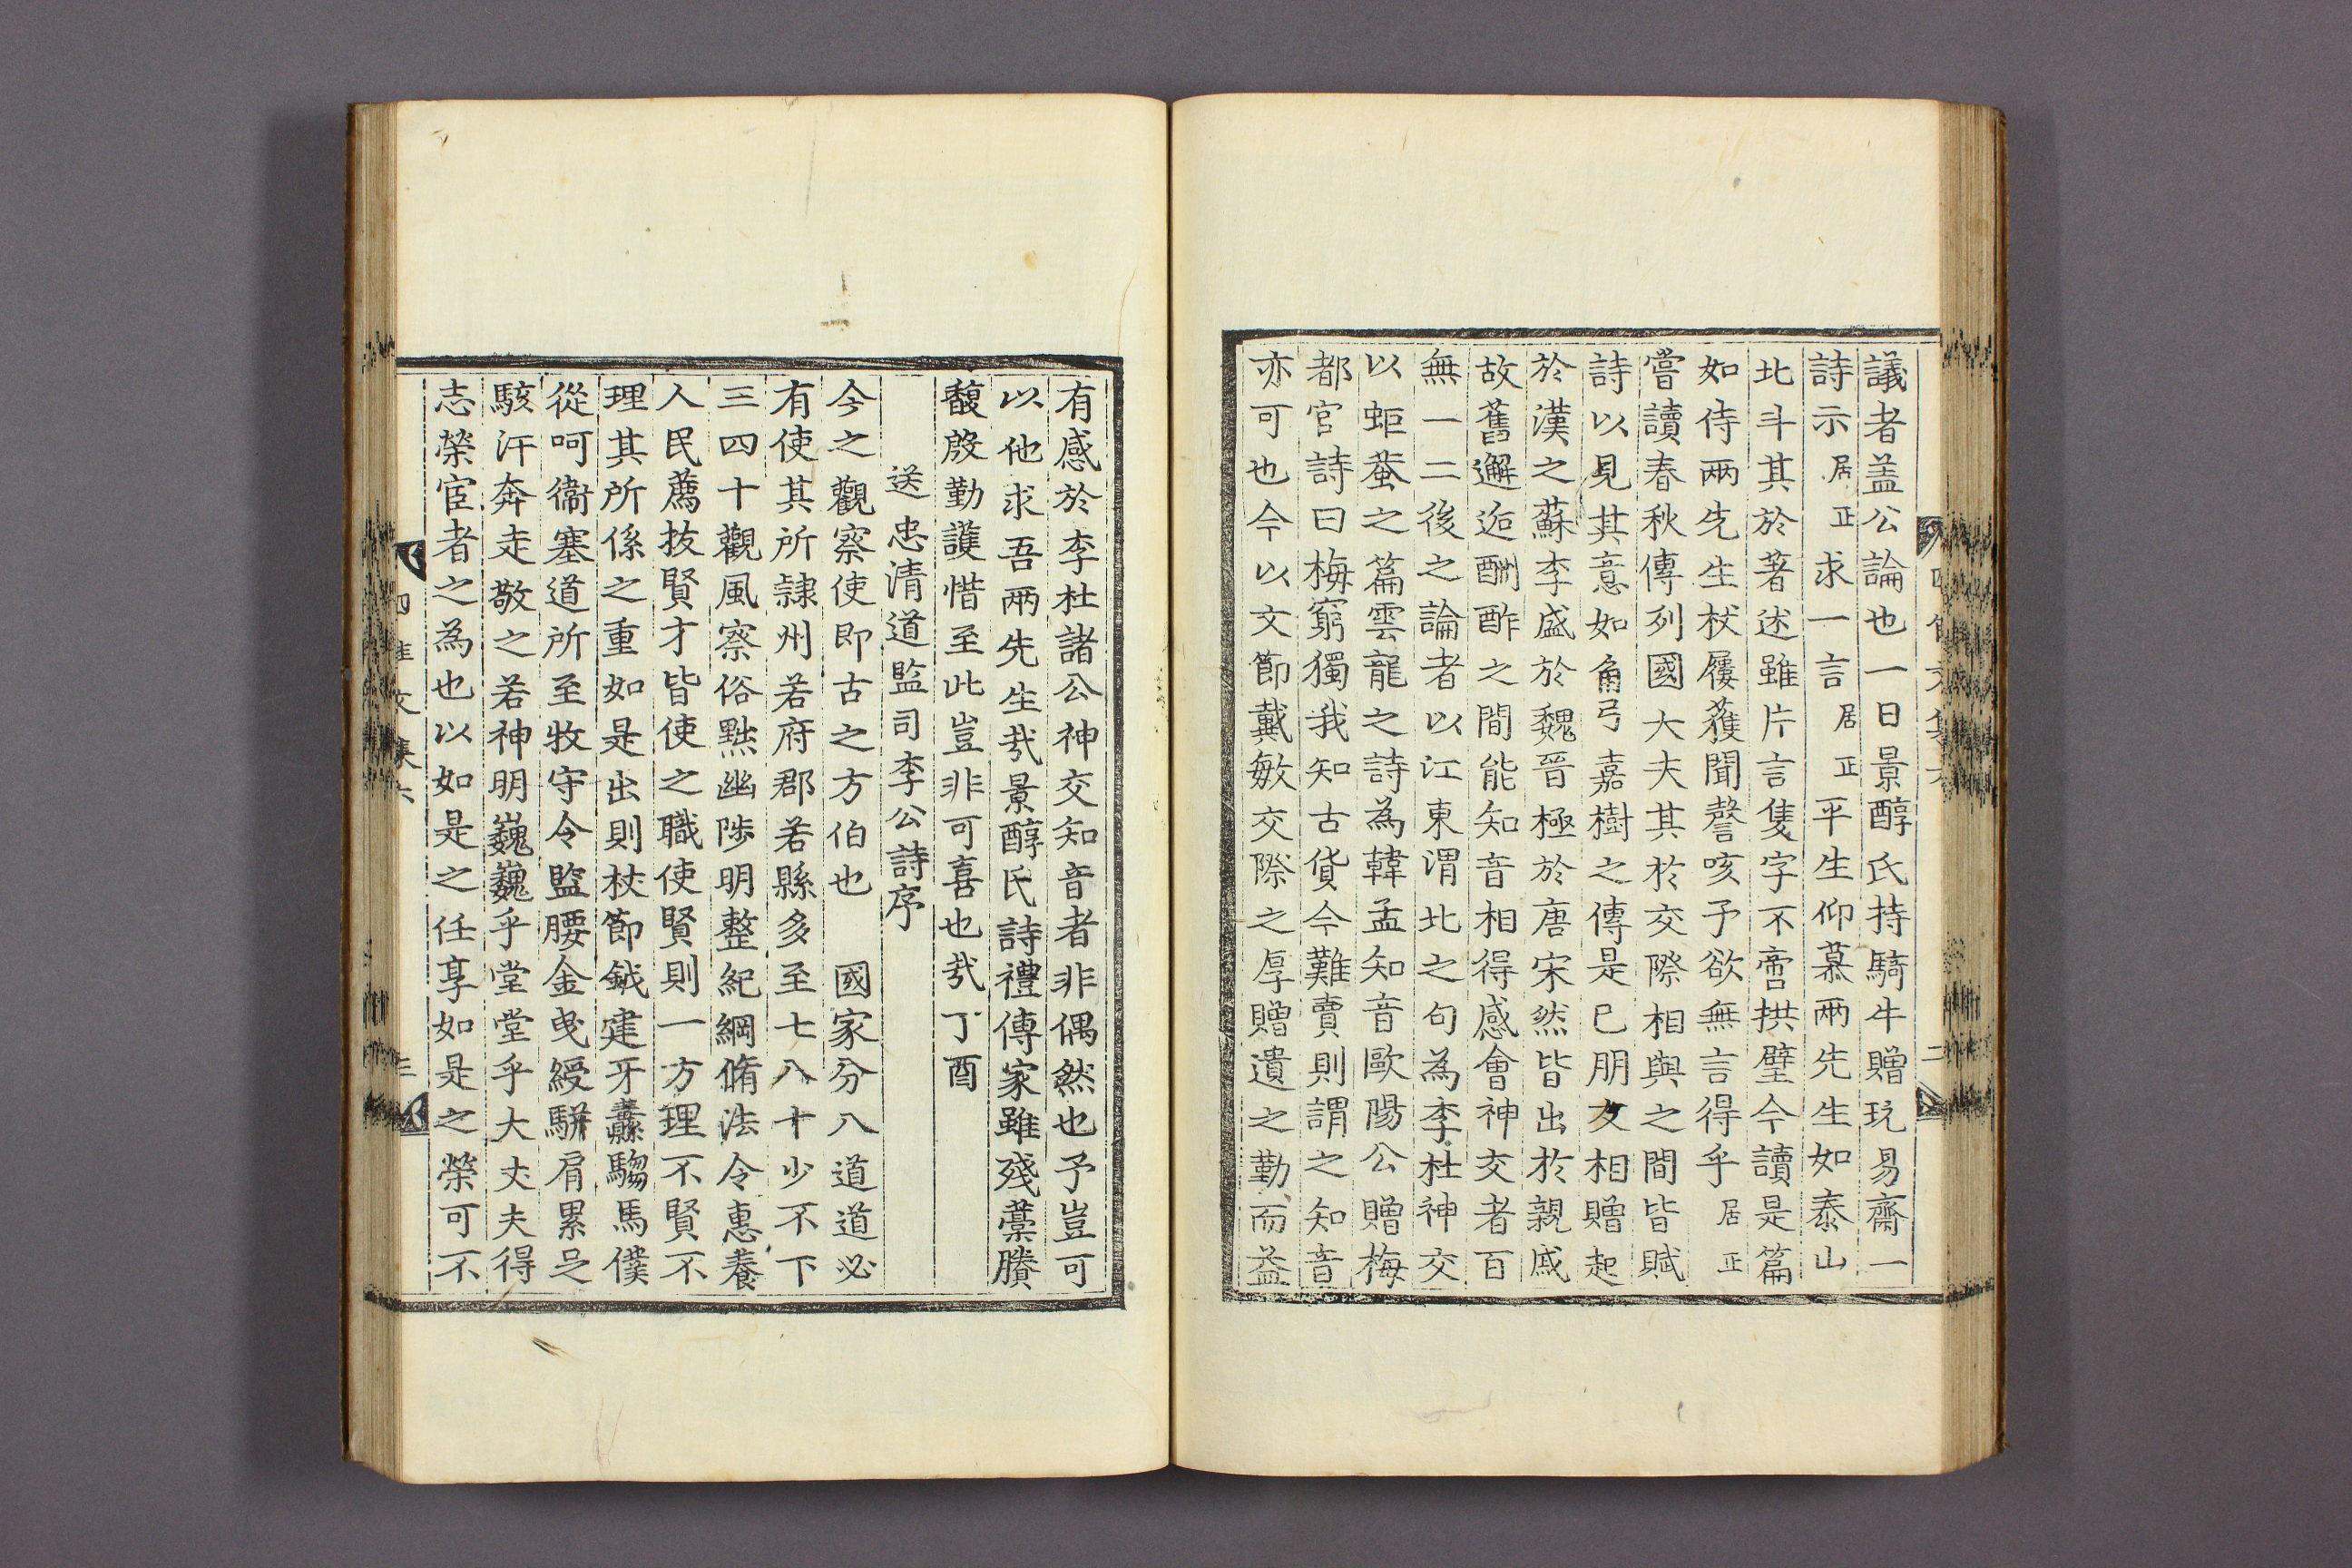 議者盖公論也一日景醇氏持騎牛贈玩易齋一
詩示居正求一言居正平生仰慕兩先生如泰山
北斗其於著述雖片言隻字不啻拱璧今讀是篇
如侍兩先生杖屨獲聞謦咳予欲無言得乎居正
嘗讀春秋傳列國大夫其於交際相與之間皆賦
詩以見其意如角弓嘉樹之傳是已朋友相贈起
於漢之蘇李盛於魏晉極於唐宋然皆出於親戚
故舊邂逅酬酢之間能知音相得感會神交者百
無一二後之論者以江東渭北之句為李杜神交
以蚷蛩之篇雲龍之詩為韓孟知音歐陽公贈梅
都官詩曰梅窮獨我知古貨今難賣則謂之知音
亦可也今以文節戴敏交際之厚贈遺之勤而益
有感於李杜諸公神交知音者非偶然也予豈可
以他求吾兩先生㢤景醇氏詩禮傳家雖殘藁賸
馥慇勤護惜至此豈非可喜也㢤丁酉
送忠清道監司李公詩序
今之觀察使即古之方伯也 國家分八道道必
有使其所隷州若府郡若縣多至七八十少不下
三四十觀風察俗黜幽陟明整紀綱脩法令惠養
人民薦拔賢才皆使之職使賢則一方理不賢不
理其所係之重如是出則杖節鉞建牙纛騶馬僕
從呵衞塞道所至牧守令監腰金曳綬騈肩累足
駭汗奔走敬之若神明巍巍乎堂堂乎大丈夫得
志榮宦者之為也以如是之任享如是之榮可不
文集六
三
二